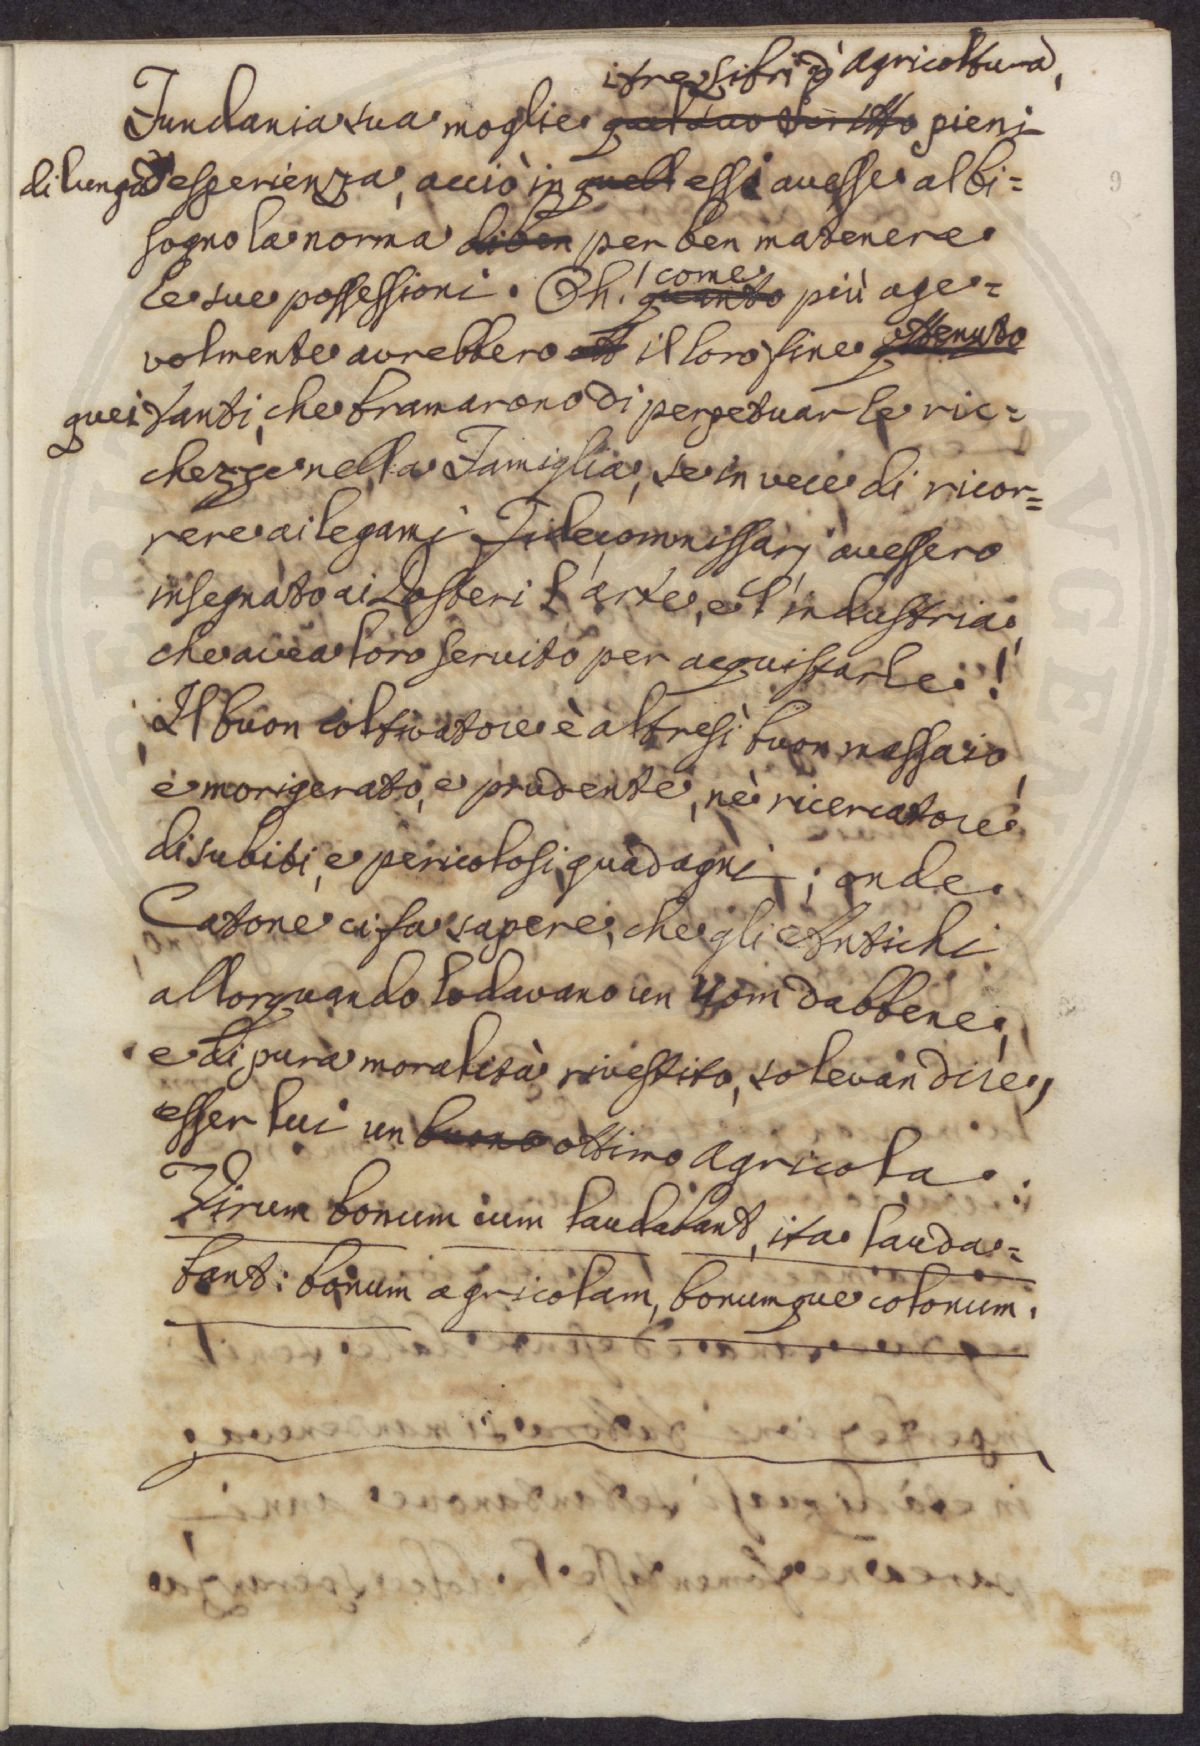 i tre Libri d'Agricoltura,
Fundania sua moglie quel suo Scritto pieni
di lunga esperienza, acciò in quell essi avesse al bi=
sogno la norma di ben per ben matenere
le sue possessioni. Oh! quanto come più age=
volmente avrebbero ott il loro fine ottenuto
quei tanti, che bramarono di perpetuar le ric=
chezze nella Famiglia, se in vece di ricor=
rere ai legami Fidecommissarj avessero
insegnato ai Posteri l'arte, e l'industria,
che avea loro servito per acquistarle!
Il buon coltivatore è altresì buon massaio,
e morigerato, e prudente, nè ricercatore
di subiti, e pericolosi guadagni; onde
Catone ci fa sapere, che gli Antichi
allorquando lodavano un Uom dabbene,
e di pura moralità rivestito, solevan dire,
esser lui un buono ottimo Agricola.:
Virum bonum cum laudabant, ita lauda=
bant: bonum agricolam, bonumque colonum.
9